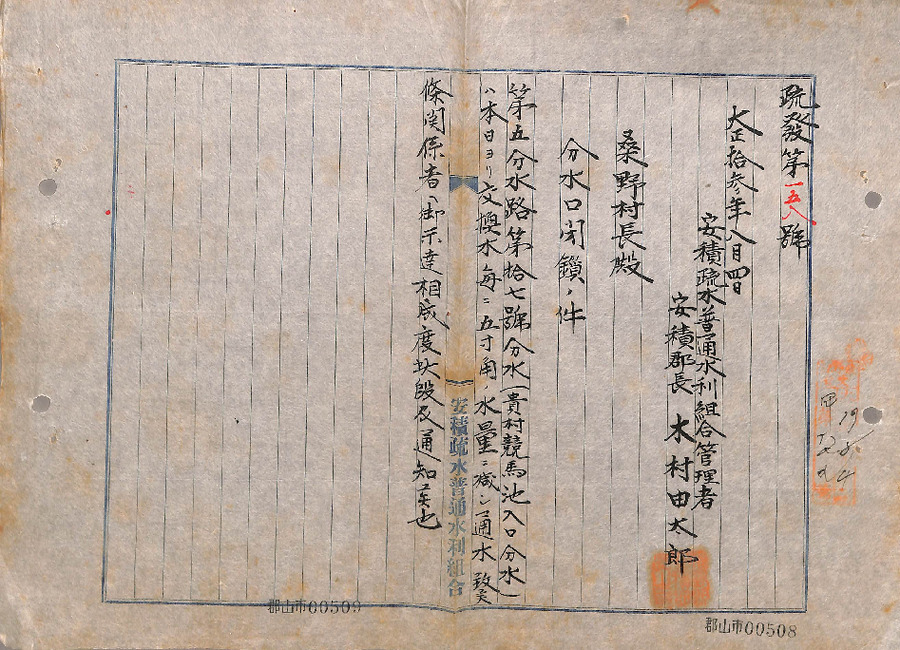 疏發第一五八號
大正拾参年八月四日
安積疏水普通水利組合管理者
安積郡長 木村由太郎
桑野村長殿
分水口閉鎖ノ件
第五分水路第拾七號分水(貴村競馬池入口分水)
ハ本日ヨリ交換水毎ニ五寸角ノ水量ニ減シ通水致候
條関係者ヘ御示達相成度此段及通知候也
安積疏水普通水利組合
郡山市00509
郡山市00508